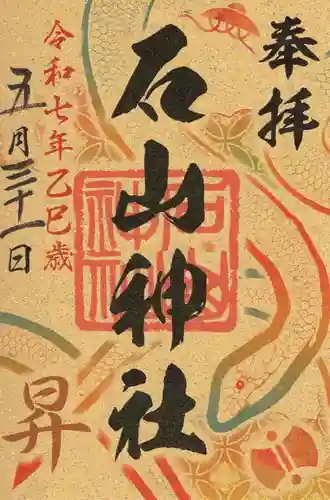 奉拝
石山神社
令和七年乙巳歳
五月三十一日
昇
石山
神社